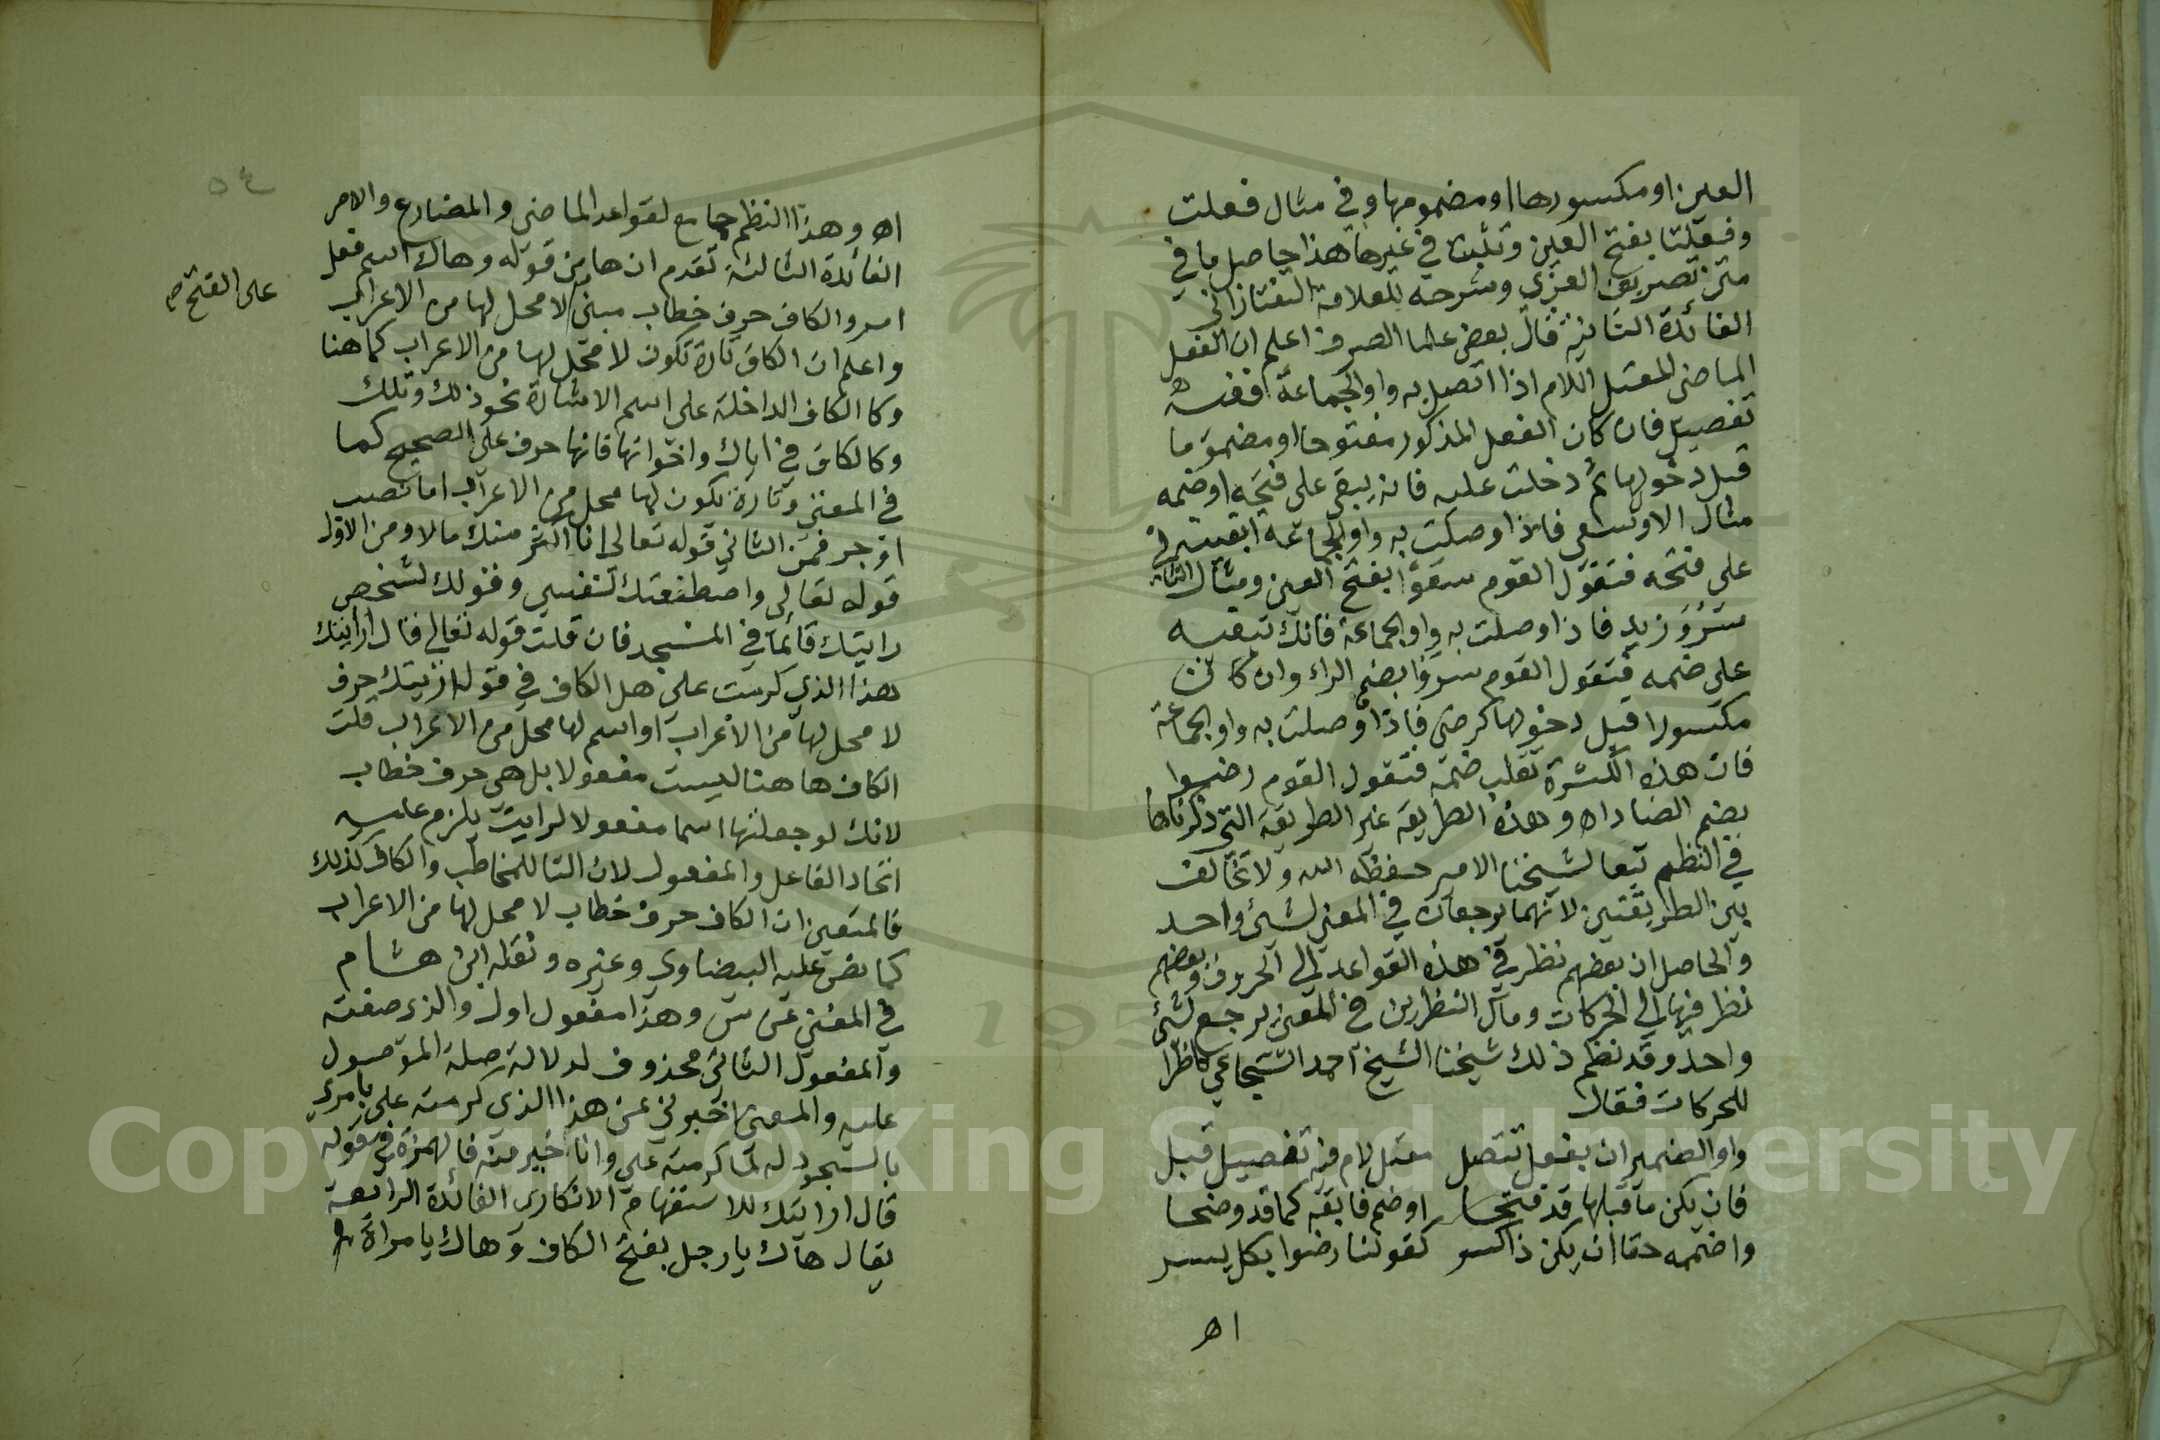 العين او مكسورها او مضمومها وفي مثال فعلت
وفعلتا بفتح العين وتثبت في غيرها هذا حاصل ما في
متن تصريف العزي وشرحه للعلامة التفتازاني
الفائدة الثانية قال بعض علما الصرف اعلم ان الفعل
الماضي المعتل اللام اذا اتصل به واو الجماعة ففيه
تفصيل فان كان الفعل المذكور مفتوحا او مضموما
قبل دخولها ثم دخلت عليه فانه يبقى على فتحه او ضمه
مثال الاول سعى فاذا وصلت به واو الجماعة ابقيته
على فتحه فتقول القوم سعوا بفتح العين ومثال الثاني
سرو زيد فاذا وصلت به واو الجماعة فانك تبقيه
على ضمه فتقول القوم سروا بضم الراء وان كانت
مكسورا قبل دخولها كرضي فاذا وصلت به واو الجماعة
فان هذه الكسرة تقلب ضمة فتقول القوم رضوا
بضم الضاد اه وهذه الطريقة غير الطريقة التي ذكرناها
في النظم تبعا لشيخنا الامير حفظه الله ولا تخالف
بين الطريقتين لانهما يرجعان في المعنى لشئ واحد
والحاصل ان بعضهم نظر في هذه القواعد الى الحروف وبعضهم
نظر فيها الى الحركات ومآل النظرين في المعنى يرجع لشئ
واحد وقد نظم ذلك شيخنا الشيخ احمد السجاعي ناظرا
للحركات فقال
واو الضمير ان بفعل تتصل معتل لام فيه تفصيل قبل
فان يكن ما قبلها قد فتحا او ضم فابقه كما قد وضحا
واضممه حقا ان يكن ذا كسر كقولنا رضوا بكل يسر
اه
٥٤
اه وهذا النظم جامع لقواعد الماضي والمضارع والامر
الفائدة الثالثة تقدم ان ها من قوله وهاك اسم فعل
امر والكاف حرف خطاب مبني لا محل لها من الاعراب
على الفتح صح
واعلم ان الكاف تارة تكون لا محل لها من الاعراب كما هنا
وكا الكاف الداخلة على اسم الاشارة نحو ذلك وتلك
وكالكاف في اياك واخواتها فانها حرف على الصحيح كما
في المغني وتارة يكون لها محل من الاعراب اما نصب
او جر فمن الثاني قوله تعالى انا اكثر منك مالا ومن الاول
قوله تعالى واصطنعتك لنفسي وقولك لشخص
رايتك قائما في المسجد فان قلت قوله تعالى قال ارايتك
هذا الذي كرمت على هل الكاف في قوله ارايتك حرف
لا محل لها من الاعراب او اسم لها محل من الاعراب قلت
الكاف ها هنا ليست مفعولا بل هي حرف خطاب
لانك لو جعلتها اسما مفعولا لرايت يلزم عليه
اتحاد الفاعل والمفعول لان التا للمخاطب والكاف كذلك
فالمتعين ان الكاف حرف خطاب لا محل لها من الاعراب
كما نص عليه البيضاوي وغيره ونقله ابن هشام
في المغني عن س وهذا مفعول اول والذي صفته
والمفعول الثاني محذوف لدلالة صلة الموصول
عليه والمعنى اخبرني عن هذا الذي كرمته علي بامري
بالسجود له لم كرمته علي وانا خير منه فالهمزة في قوله
قال ارايتك للاستفهام الانكاري الفائدة الرابعة
يقال هاك يا رجل بفتح الكاف وهاك يا مراة
Copyright © King Saud University